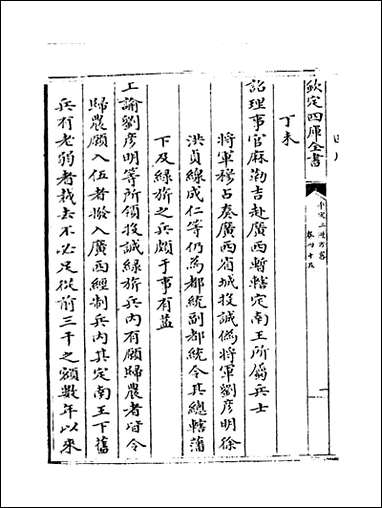 欽定四庫全書
平定三逆方畧
卷四十五
丁未
詔理事官麻勒吉赴廣西暫轄定南王所屬兵士
將軍穆占奏廣西省城投誠偽將軍劉彦明徐
洪貞線成仁等仍為都統副都統令其總轄藩
下及綠旗之兵頗于事有益
上諭劉彦明等所領投誠綠旗兵內有願歸農者皆令
歸農願入伍者撥入廣西經制兵內其定南王下舊
兵有老弱者裁去不必足從前三千之額數年以來